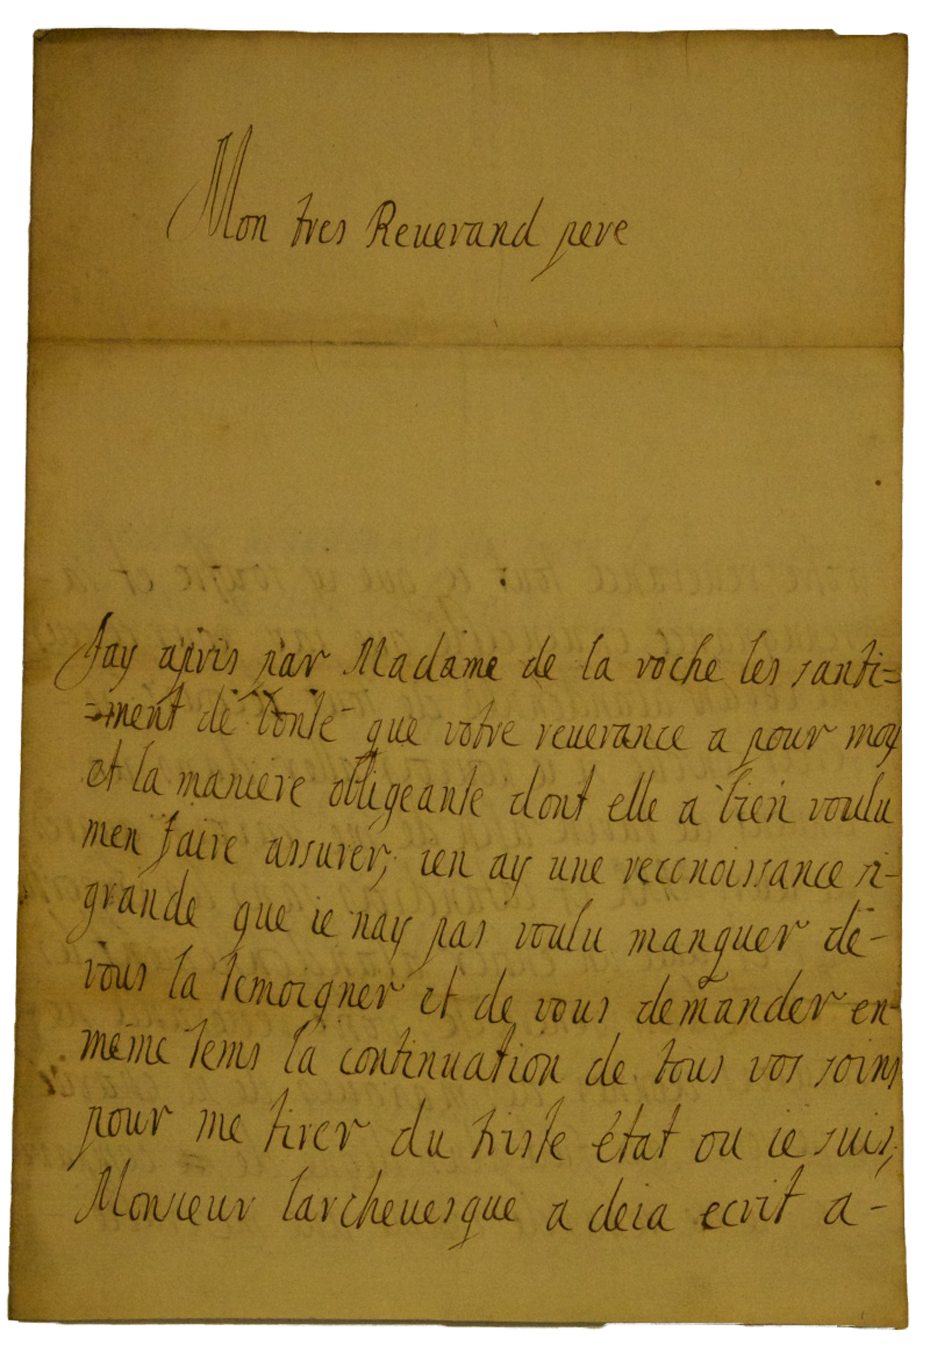 Mon tres Reuerand pere
Jay apris par Madame de la roche les santi=
=ment de bonte que votre reuerance a pour moy
et la maniere obligeante dont elle a bien voulu
men faire assurer, ien ay une reconoissance si-
grande que ie nay pas voulu manquer de-
vous la temoigner et de vous demander en-
méme tems la continuation de tous vos soins
pour me tirer du triste état ou ie suis,
Monsieur larcheuesque a deia ecrit a-